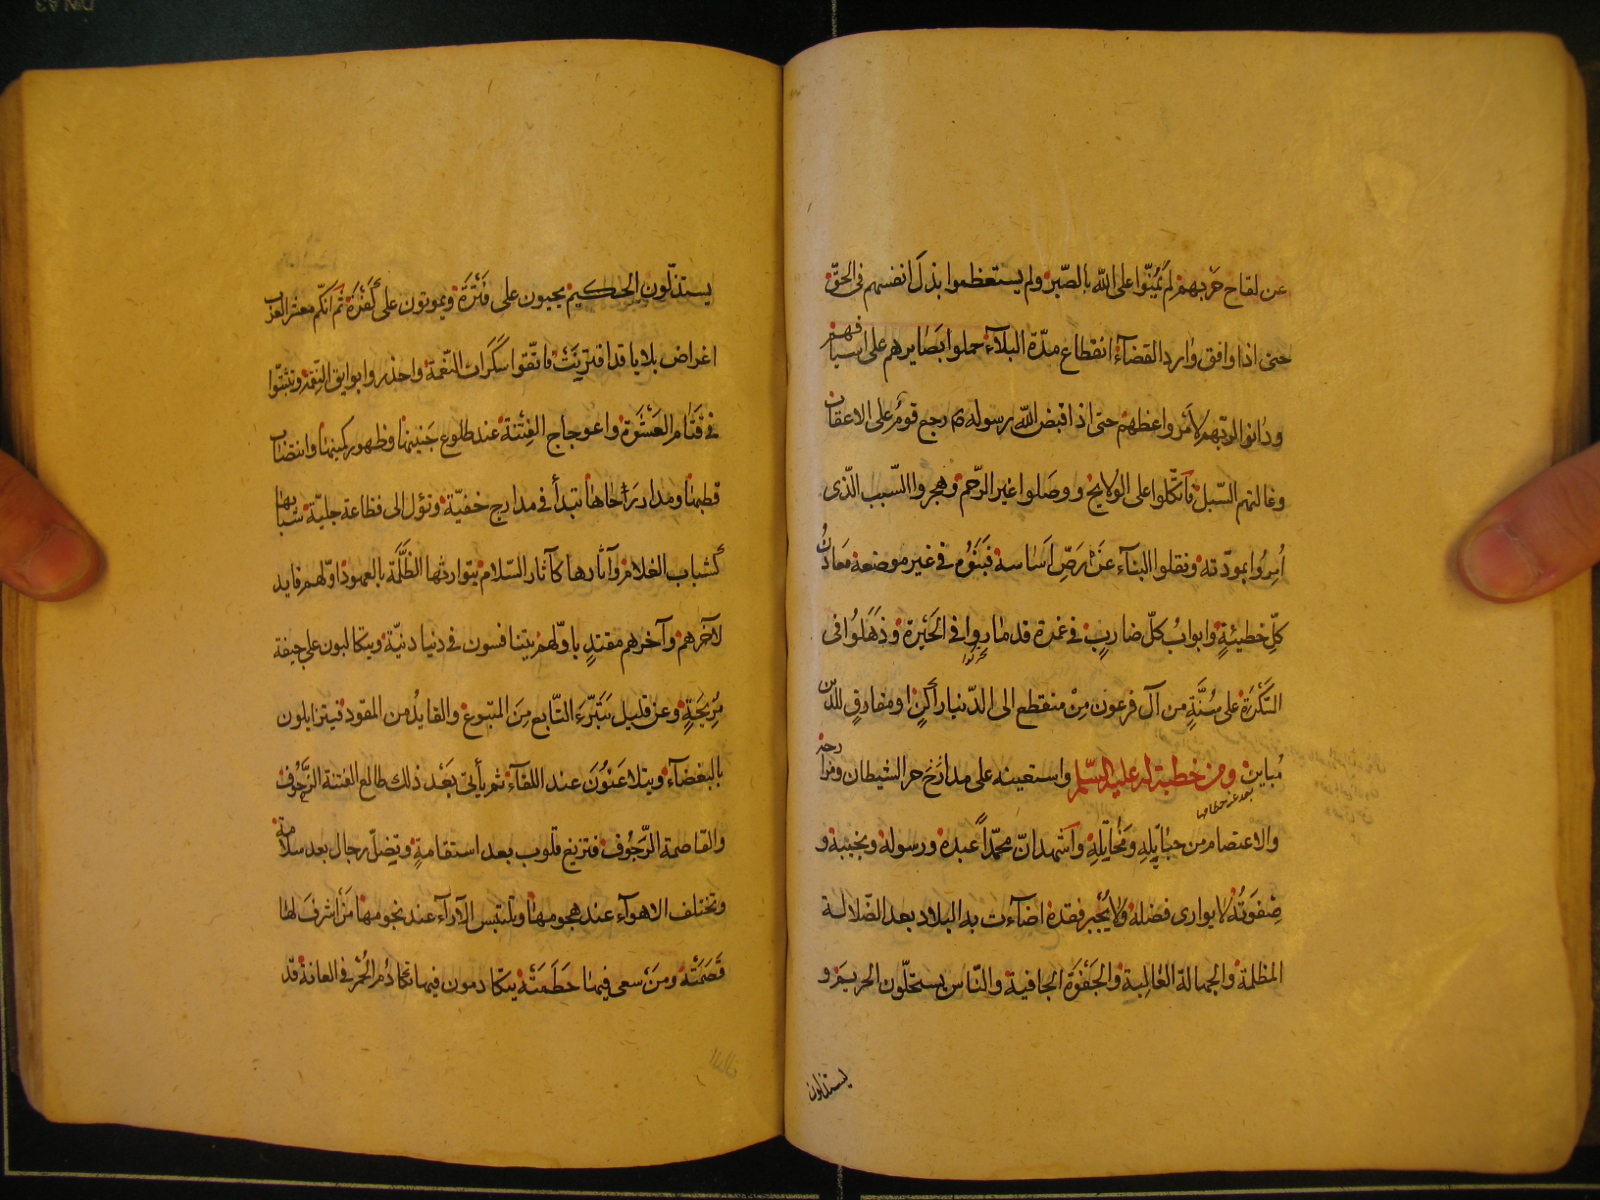 عن لقاح حربهم لم يمنّوا على الله بالصّبر ولم يستعظموا بذل انفسهم فى الحقّ
حتى اذا وافق وارد القضآء انقطاع مدّة البلآء حملوا بصايرهم على اسيافهم
ودانوا لربّهم بامر واعظهم حتى اذا قبض الله رسوله ص رجع قوم على الاعقاب
وغالتهم السّبل واتّكلوا على الولايج ووصلوا غير الرّحم وهجروا السّبب الّذى
اُمروا بمودّته ونقلوا البنآء عن رصّ اساسه فبنوه فى غير موضعه معادن
كلّ خطيئةٍ وابوابُ كلّ ضاربٍ فى غمرة قد ماروا فى الحَيْرة وذهلوا فى
السَّكْرة على سُنَّةٍ من آل فرعون مِنْ منقطع الى الدّنيا راكنٍ او مفارقٍ للدّين
مُباينٍ ومن خطبة له عليه السّلم واستعينه على مداحر الشيطان ومزاجره
والاعتصام من حبايله ومخايله واشهد انّ محمّداً عبده ورسوله ونجيبه و
صفوته لا يوازى فضله ولا يُجْبر فقده اضآءت به البلاد بعد الضّلالة
المظلمة والجهالة الغالبة والجَفْوَة الجافية والنّاس يستحلّون الحريم و
يستذلون
يستذلّون الحكيم يحيون على فَتْرَة ويموتون على كَفْرَة ثم انكم معشر العرب
اغراض بلايا قد اقتربَتْ فاتّقوا سكرات النّعمة واحذروا بوايق النّقمة وتثبّتوا
فى قَتَام العَشْوَة واعوجاج الفِتْنة عند طلوع جنينها وظهور كمينها وانتصاب
قطبها ومدار رَحَاها تبدأ فى مدارج خفيّة وتؤل الى فظاعة جليّة شبابها
كشباب الغلام وآثارها كآثار السّلام يتوارثها الظَّلَمَة بالعهود اوّلهم قايد
لآخرهم وآخرهم مقتدٍ باوّلهم يتنافسون فى دنيا دنيّة ويتكالبون على جيفة
مُرِيحَةٍ وعن قليل يَتَبَرّء التّابع مِنَ المتبوع والقايدُ من المقود فيتزايلون
بالبغضآء ويتلاعنُونَ عند اللقآء ثم يأتى بَعْد ذلك طالع الفتنة الرَّجُوف
والقاصمة الزّحُوف فتزيغ قلوب بعد استقامةٍ وتضلّ رجال بعد سلامة
وتختلف الاهوآء عند هجومها وتلتبس الآرآء عند نجومها مَن اشرفَ لها
قَصَمَتْه ومن سعى فيها حَطَمَتْه يتكادمون فيها تكادُم الحُمُر فى العانة قد